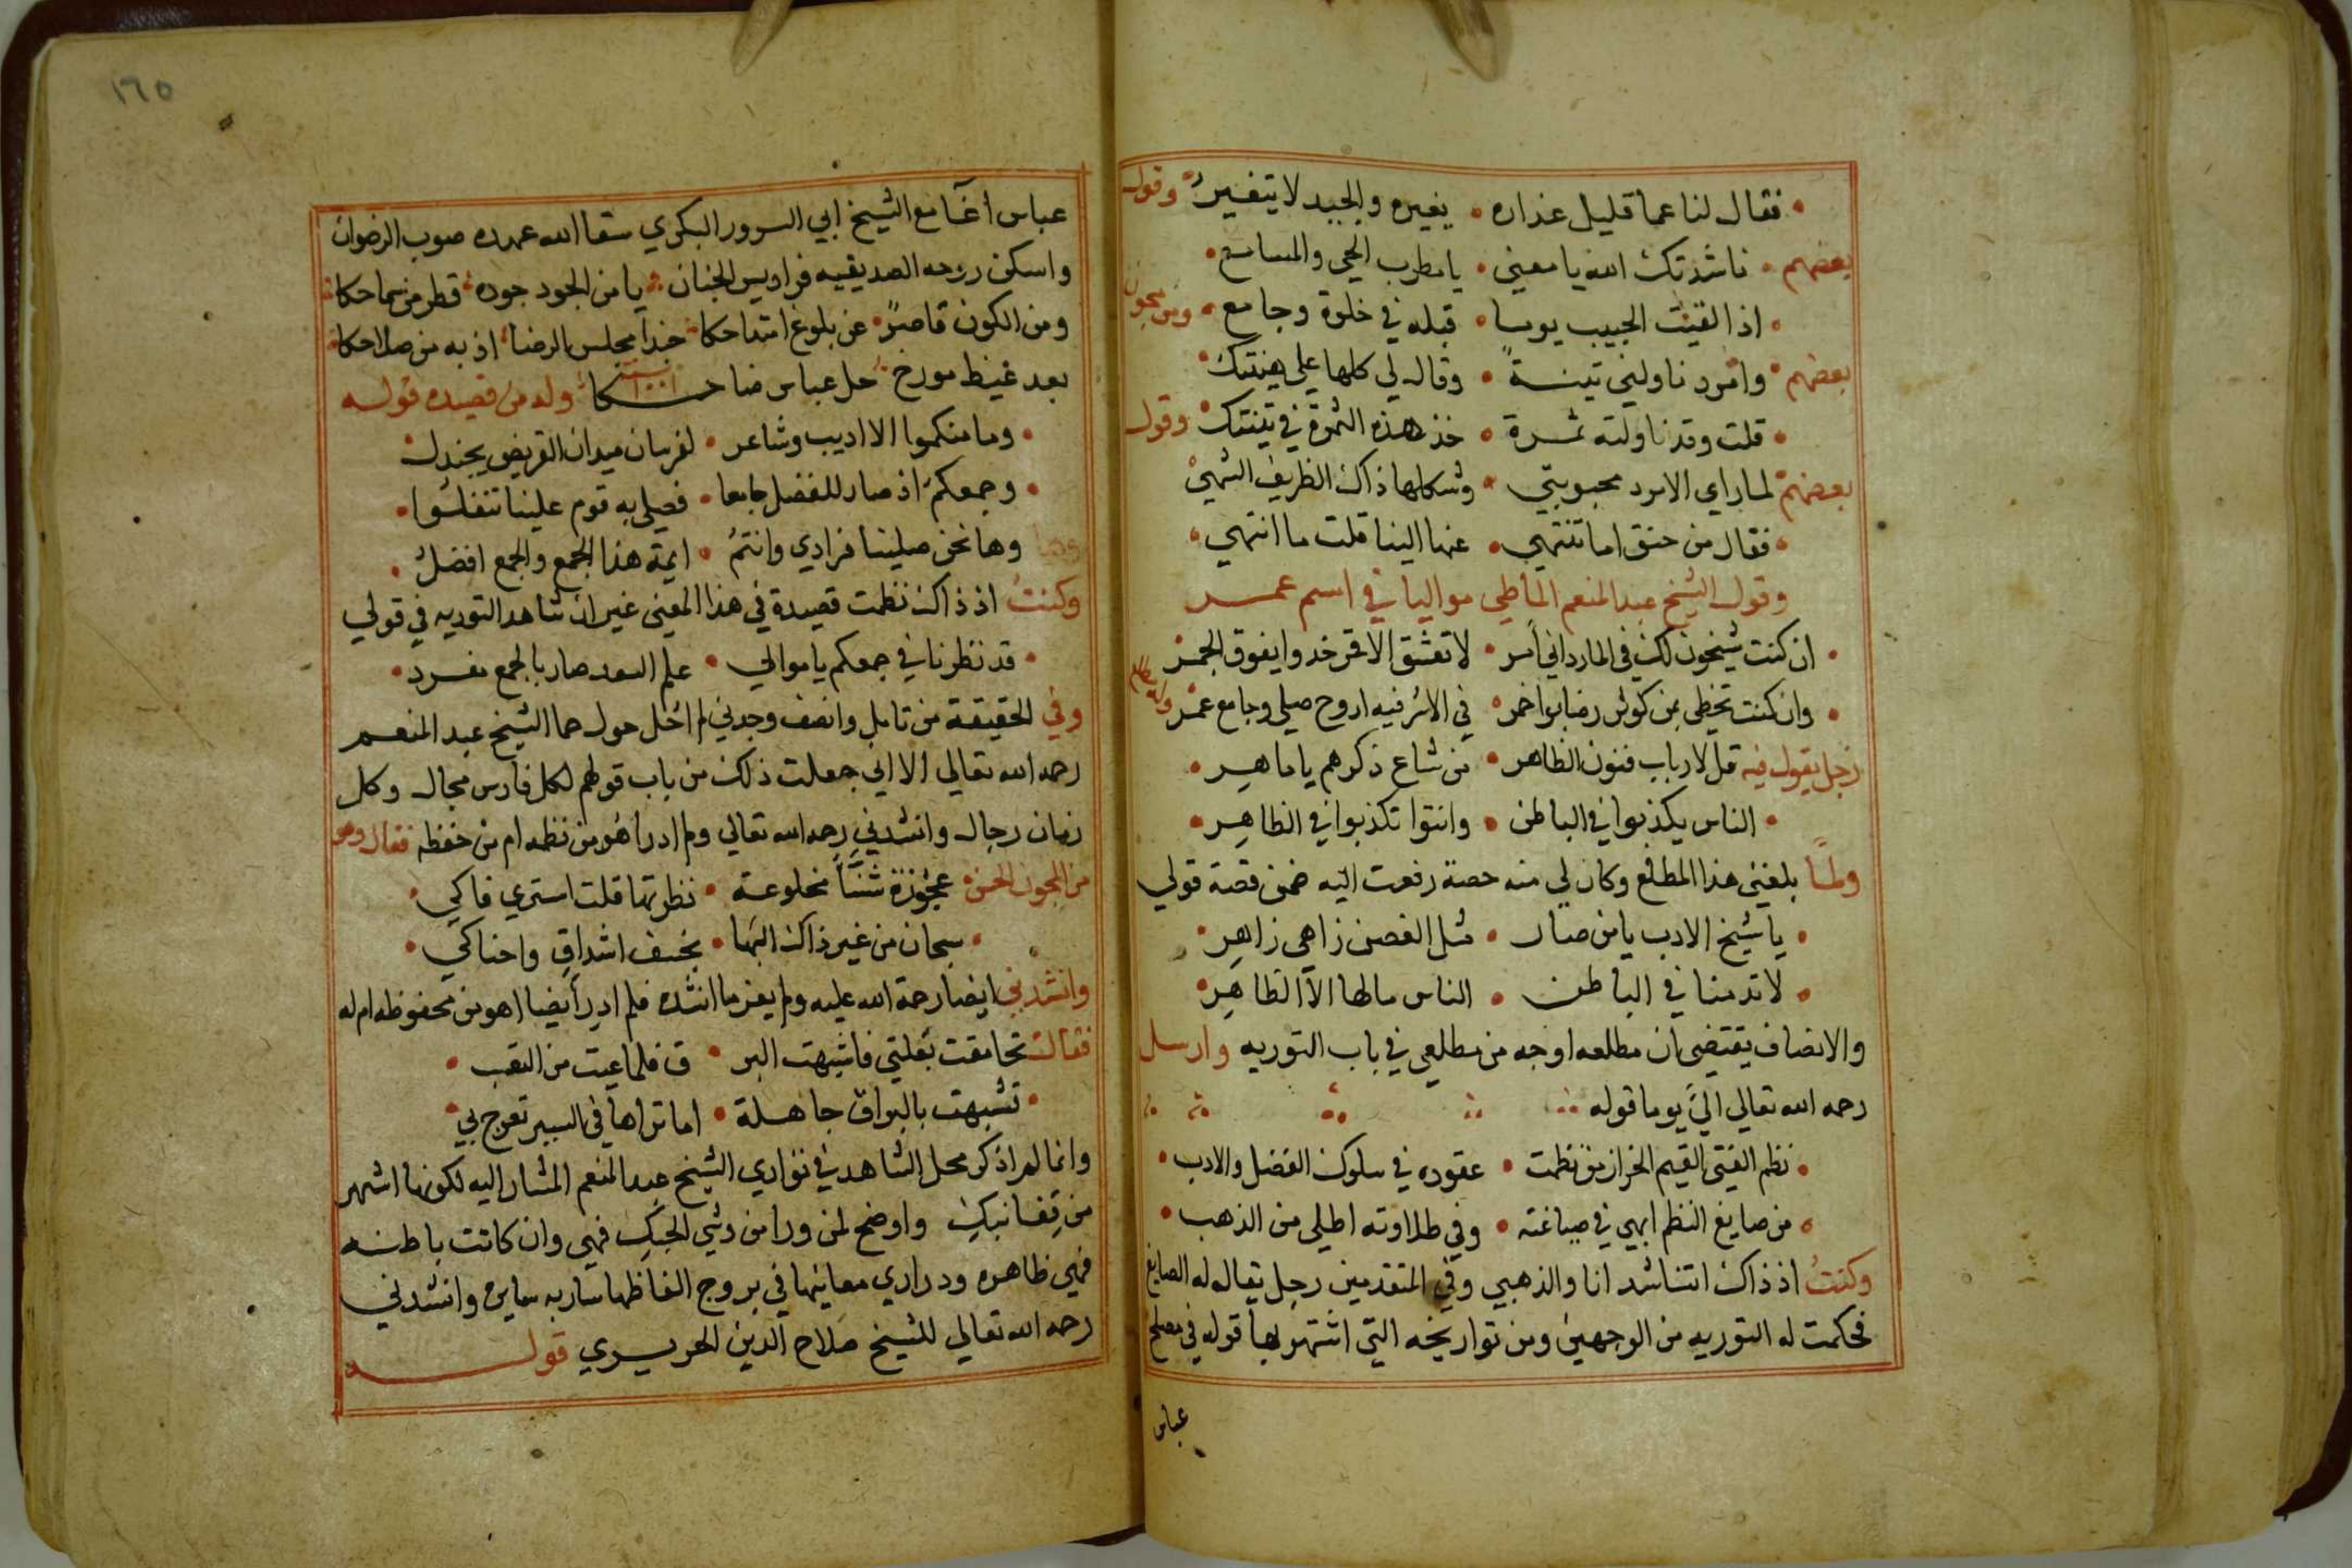 فقال لنا عما قليل عذاره • يغيره والجيد لا يتغير • وقول
بعضهم • ناشدتك الله يا معيني • يا مطرب الحي والمسامع •
• اذا لقيت الحبيب يوما • قبله في خلوة وجامع • ومن مجون
بعضهم • وامرد ناولني تينة • وقال لي كلها علي هينتك •
• قلت وقد ناولته ثمرة • خذ هذه الثمرة في تينتك • وقول
بعضهم لما راي الامرد محبوبتي • وشكلها ذاك الظريف الشهي
• فقال من حنق اما تنتهي • عنها الينا قلت ما انتهي •
وقول الشيخ عبد المنعم الماطي مواليا في اسم عمر
• ان كنت شيخون لك في المارداني امر • لا تعشق الا قمر خدوا يفوق الجمر
• وان كنت تخطي من كوثر رضابوا خمر • في الاشرفيه اروح صلي وجامع عمر
زجل يقول فيه قل لارباب فنون الظاهر • من شاع ذكرهم يا ماهر •
• الناس يكذبوا في الباطن • وانتوا تكذبوا في الظاهر •
ولما بلغني هذا المطلع وكان لي منه حصة رفعت اليه ضمن قصة قولي
• يا شيخ الادب يا من صار • مثل الغصن زاهي زاهر •
• لا تدمنا في الباطن • الناس مالها الا الظاهر •
والانصاف يقتضي ان مطلعه اوجه من مطلعي في باب التوريه وارسل
رحمه الله تعالي الي يوما قوله
• نظم الفتي القيم الخراز من نظمت • عقوده في سلوك الفضل والادب •
• من صايغ النظم ابهي في صياغته • وفي طلاوته اطلي من الذهب •
وكنت اذ ذاك اتناشد انا والذهبي وفي المتقدمين رجل يقال له الصايغ
فحكمت له التوريه من الوجهين ومن تواريخه التي اشتهر بها قوله في صلح
عباس
١٦٥
عباس اغا مع الشيخ ابي السرور البكري سقا الله عهده صوب الرضوان
واسكن روحه الصديقيه فراديس الجنان • يا من الجود جوده • قطر من سماحكا •
ومن الكون قاصر • عن بلوغ امتداحكا • خذا مجلس الرضا • اذ به من صلاحكا •
بعد غيظ مورخ • حل عباس ضاحكا • سنة ١٠٠١ وله من قصيده قوله
• وما منكموا الا اديب وشاعر • لفرسان ميدان القريض يجندل •
• وجمعكم اذ صار للفضل جامعا • فصلي به قوم علينا تفضلوا •
وها نحن صلينا فرادي وانتم • ايمة هذا الجمع والجمع افضل •
وكنت اذ ذاك نظمت قصيدة في هذا المعني غير ان شاهد التوريه في قولي
• قد نظرنا في جمعكم يا موالي • علم السعد صار بالجمع مفرد •
وفي الحقيقة من تامل وانصف وجدني لم اخل حول حما الشيخ عبد المنعم
رحمه الله تعالي الا اني جعلت ذلك من باب قولهم لكل فارس مجال وكل
زمان رجال وانشدني رحمه الله تعالي ولم ادر اهو من نظمه ام من حفظه فقال وهو
من المجون الحسن • عجوزة شنا مخلوعة • نظرتها قلت استري فاكي •
• سبحان من غير ذاك البها • بخسف اشداق واحناكي •
وانشدني ايضا رحمة الله عليه ولم يعز ما انشده فلم ادر ايضا اهو من محفوظه ام له
فقال تحامقت بغلتي فاشبهت البر • ق فلما عيت من التعب •
• تشبهت بالبراق جاهلة • اما تراها في السير تعرج بي •
وانما لم اذكر محل الشاهد في نوادي الشيخ عبد المنعم المشار اليه لكونها اشهر
من قفا نبك واوضح لمن ورا من وشي الحبك فهي وان كانت باطنه
فهي ظاهره ودراري معانيها في بروج الفاظها ساريه سايره وانشدني
رحمه الله تعالي للشيخ صلاح الدين الحريري قوله